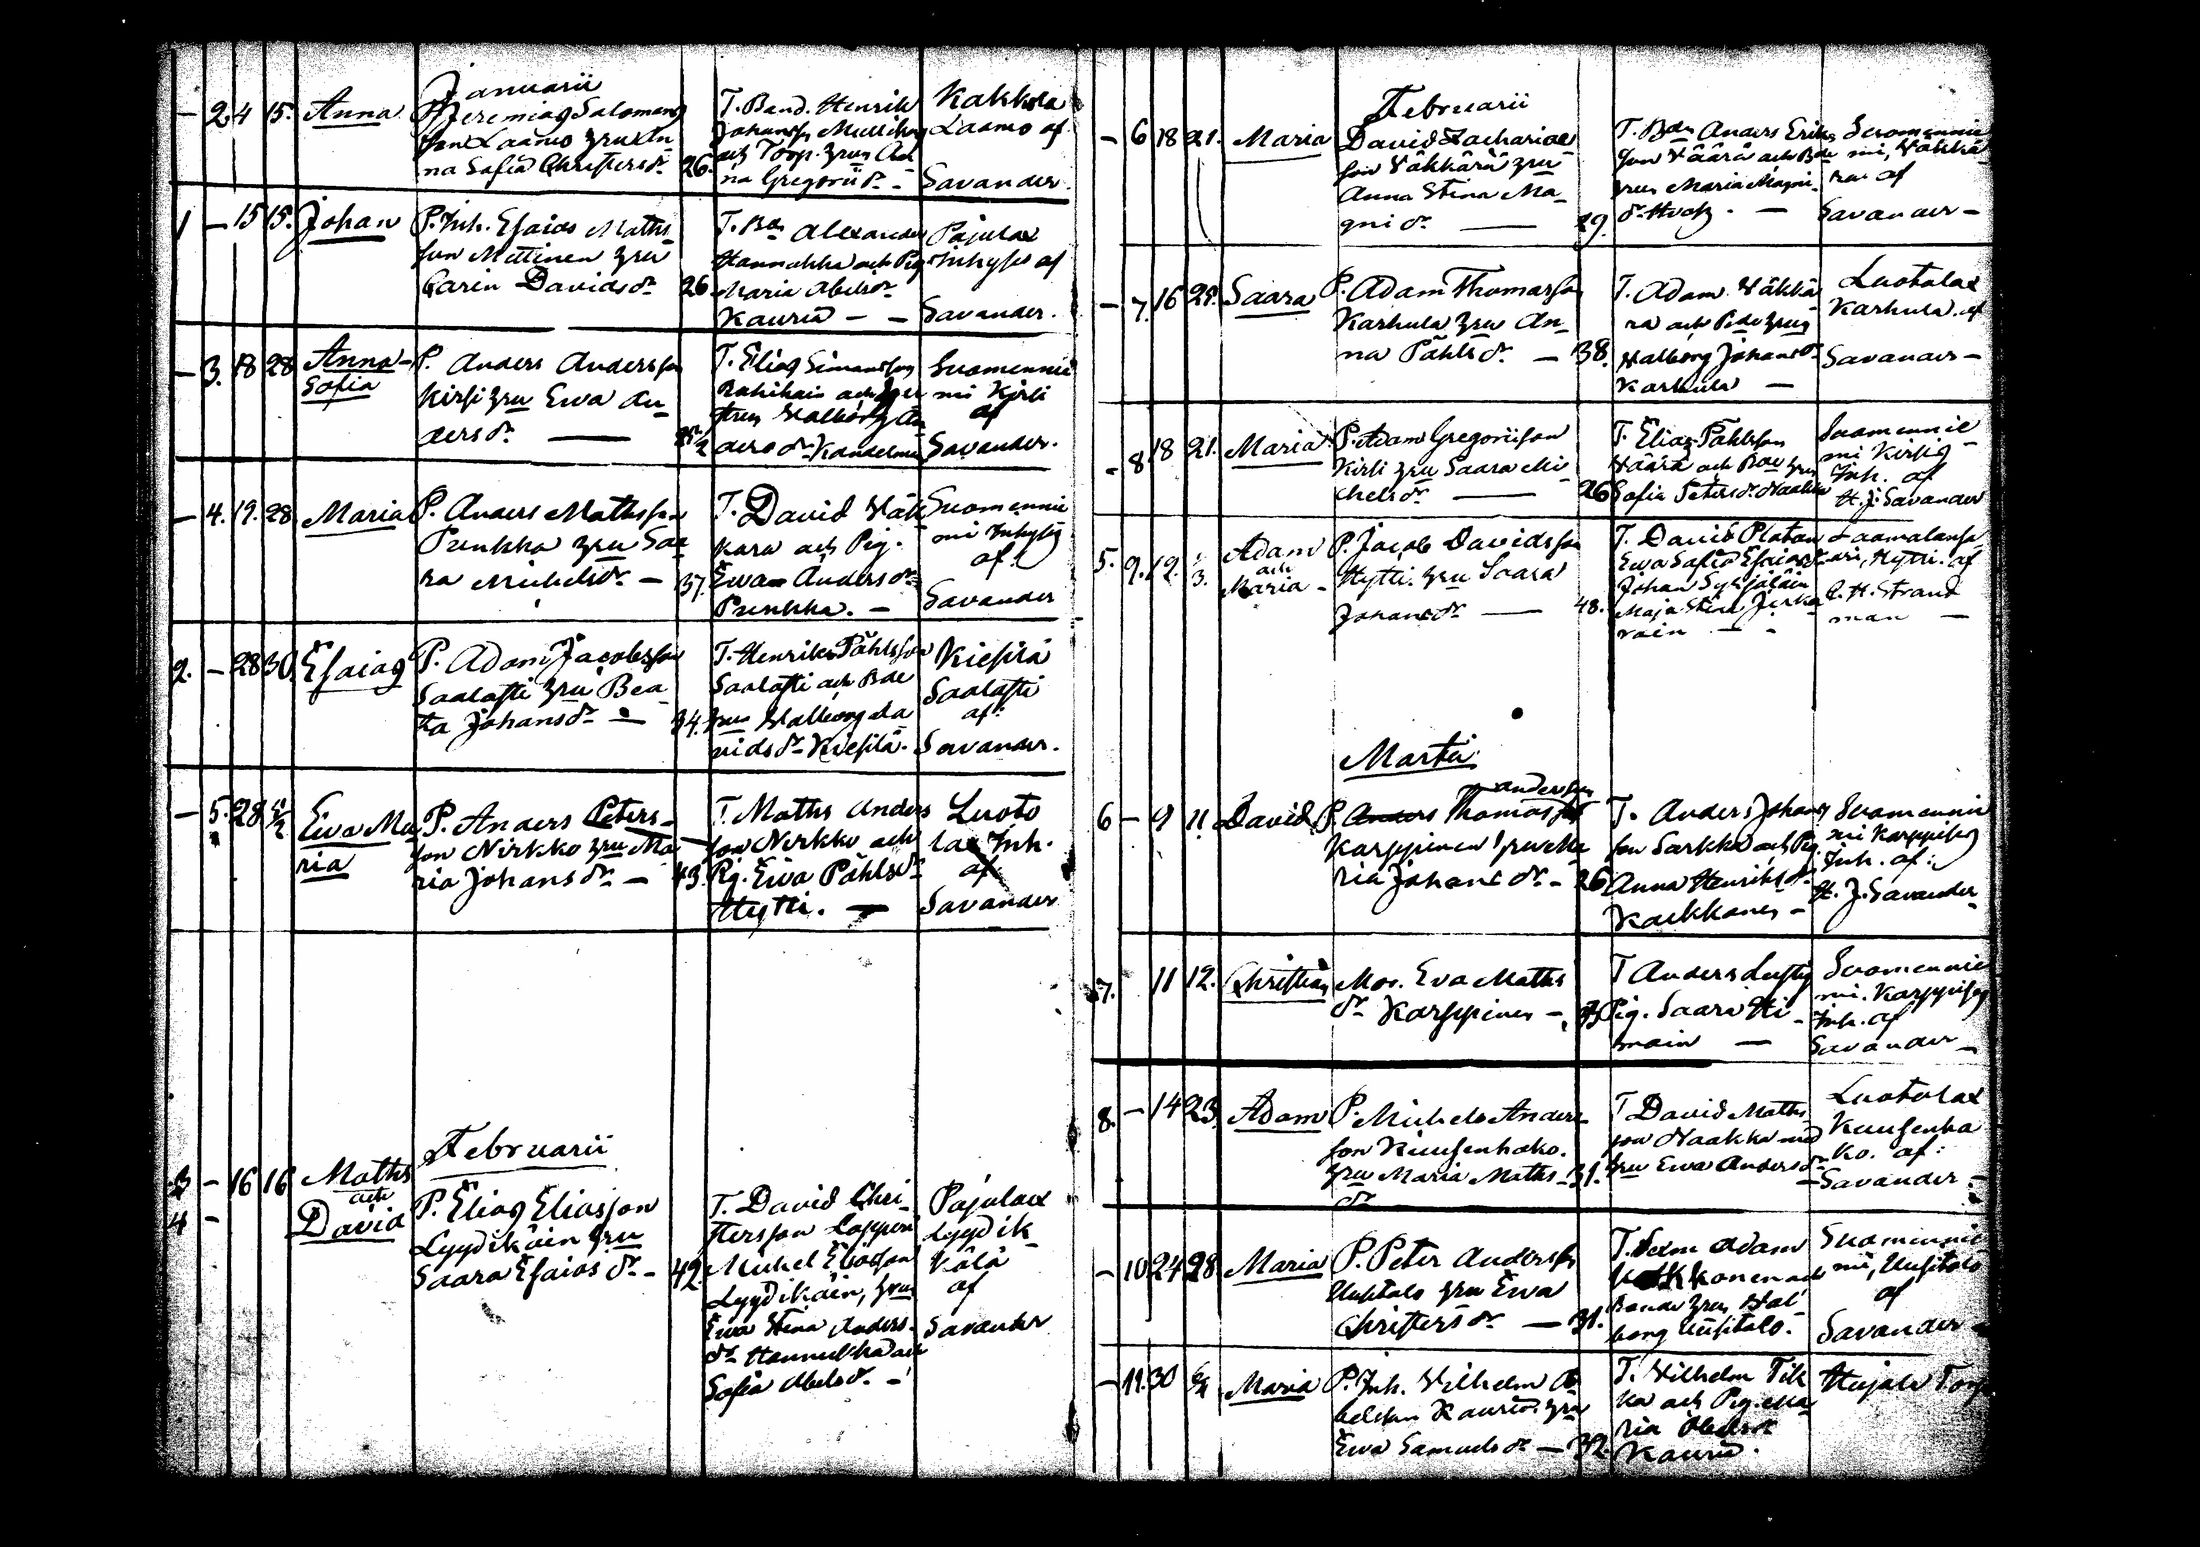 Januarii
- 2. 4 15. Anna
P. Jeremias Salomons
son Laamo hru An
na Sofia Christersdr 26.
T. Bond. Henrik
Johanss
och Torp. hru
na Gregoriidr -
Kakkola
Laamo af
Savander.
1 - 15 15. Johan
P. Inh. Esaias Maths
son Mettinen hru
Carin Davidsdr 26
T. Bdn Alexander
Hannukka och Pig
Maria Abelsdr
Kauria - -
Pajulax
Inhyses af
Savander.
- 3. 18 28 Anna
Sofia
P. Anders Andersson
Kirsi hru Ewa An
dersdr —
T. Elias Simonsson
Rahikain och
hru Walborg An
dersdr
Suomennie
mi Kirsi
af
Savander.
- 4. 19. 28 Maria
P. Anders Mathsson
Punkka hru Saa
ra Michelsdr - 37.
T. David Väk
kara och Pig.
Ewa Andersdr
Punkka. -
Suomennie
mi Inhyses
af:
Savander
2. - 28 30. Esaias
P. Adam Jacobsson
Saalasti hru Bea
ta Johansdr - 34.
T. Henrik Påhlsson
Saalasti och Bde
hru Walborg Da
vidsdr Kiesilä.
Kiesilä
Saalasti
af:
Savander.
- 5. 28 2/2 Ewa Ma
ria
P. Anders Peters
son Nirkko hru Ma
ria Johansdr - 43.
T. Maths Anders
son Nirkko och
Pig. Ewa Påhlsdr
Hytti. -
Luoto
lax Inh.
af
Savander
Februarii
3 - 16 16 Maths
och
4 - David
P. Elias Eliasson
Lyydikäin hru
Saara Esaiasdr - 42.
T. David Chri
stersson
Michel Eliasson
Lyydikäin, hru
Ewa Stina Anders
dr Hannukka och
Sofia Abelsdr. -
Pajulax
Lyydik
kälä
af
Savander
Februarii
- 6 18 21. Maria
David Zacharias
son Väkkärä hru
Anna Stina Ma
gnidr — 29.
T. Bdn Anders Eriks
son Väärä och Bde
hru Maria Magni
dr -
Suomennie
mi, Väkkä
rä af
Savander -
- 7. 16 21. Saara
P. Adam Thomasson
Karhula hru An
na Påhlsdr. - 38.
T. Adam Väkkä
rä och Bde hru
Walborg Johansdr
Karhula -
Luotolax
Karhula af
Savander -
- 8. 18 21. Maria
P. Adam Gregoriison
Kirsi hru Saara Mi
chelsdr — 26
T. Elias Påhlsson
Väärä och Bde hru
Sofia Petersdr Naakka
Suomennie
mi Kirsis
Inh. af
H. J. Savander
5. 9. 12. 1/3. Adam
och
Maria -
P. Jacob Davidsson
Hytti. hru Saara
Johansdr — 48.
T. David Platan
Ewa Sofia Esaiasdr
Johan Syrjäläin
Maja Stina
rain - -
Laamalansa
ari, Hytti. af
C. H. Strand
man -
Martii
andersson
6 - 9 11 David
P. Anders Thomasson
Karppinen hru Ma
ria Johansdr. - 26
T. Anders Johans
son Sarkka och Pig.
Anna Henriksdr
Kaukkanen -
Suomennie
mi Karppises
Inh. af:
H. J. Savander
7. 11 12. Christian
Mor. Eva Maths
dr Karppinen -
T Anders Lustig
Pig. Saara Hi
main -
Suomennie
mi. Karppises
Inh. af
Savander -
8. - 14 23. Adam
P. Michels Anders
son Kuusenhako.
hru Maria Maths 31.
dr
T David Maths
son Naakka med
hru Ewa Andersdr
Luotolax
Kuusenha
ko. af:
Savander -
- 10 24 28. Maria
P. Peter Andersson
Uusitalo hru Ewa
Christersdr - 31.
T. Adam
Kokkonen och
Bonde hru Wal
borg Uusitalo.
Suomennie
mi, Uusitalo
af
Savander -
- 11. 30 6/4 Maria
P. Inh. Wilhelm A
belsson Kauria. hru
Ewa Samuelsdr - 32.
T. Wilhelm Tik
ka och Pig. Ma
ria Abelsdr
Kauria.
Hujala Torp